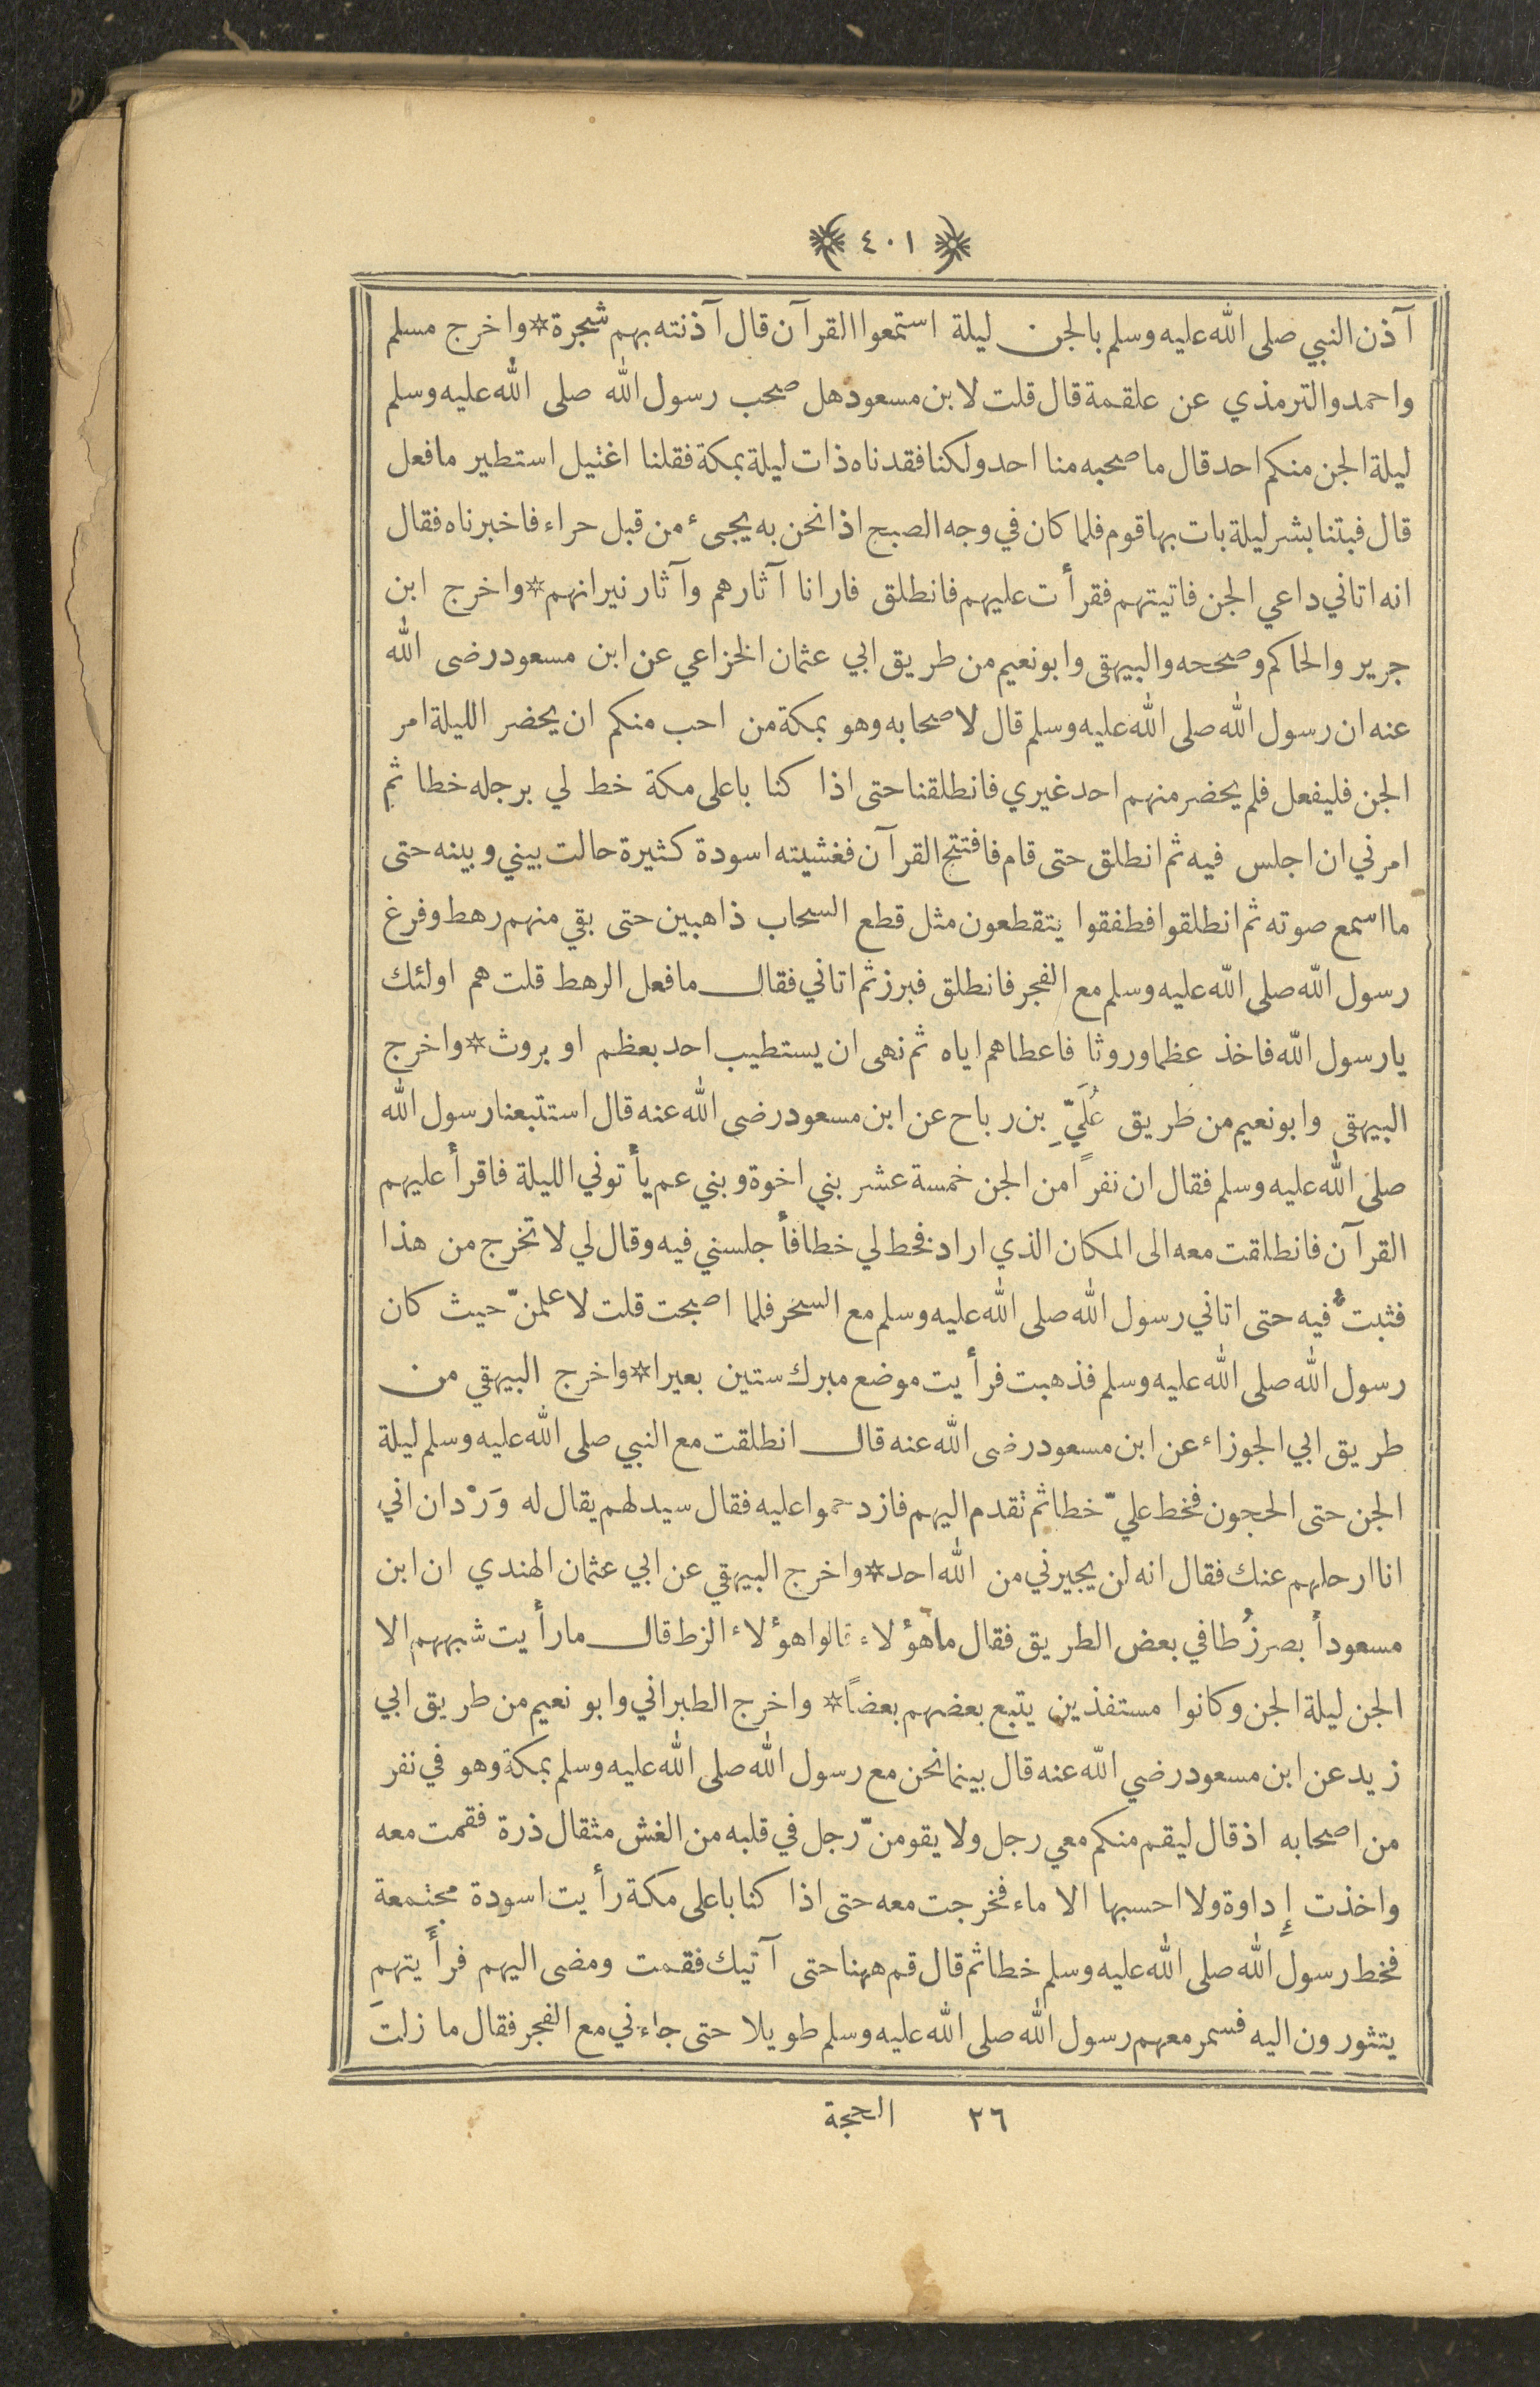 ٤٠١
آذن النبي صلى الله عليه وسلم بالجن ليلة استمعوا القرآن قال آذنته بهم شجرة * واخرج مسلم
واحمد والترمذي عن علقمة قال قلت لابن مسعود هل صحب رسول الله صلى الله عليه وسلم
ليلة الجن منكم احد قال ما صحبه منا احد ولكنا فقدناه ذات ليلة بمكة فقلنا اغتيل استطير ما فعل
قال فبتنا بشر ليلة بات بها قوم فلما كان في وجه الصبح اذا نحن به يجيء من قبل حراء فاخبرناه فقال
انه اتاني داعي الجن فاتيتهم فقرأت عليهم فانطلق فارانا آثارهم وآثار نيرانهم * واخرج ابن
جرير والحاكم وصححه والبيهقي وابو نعيم من طريق ابي عثمان الخزاعي عن ابن مسعود رضى الله
عنه ان رسول الله صلى الله عليه وسلم قال لاصحابه وهو بمكة من احب منكم ان يحضر الليلة امر
الجن فليفعل فلم يحضر منهم احد غيري فانطلقنا حتى اذا كنا باعلى مكة خط لي برجله خطا ثم
امرني ان اجلس فيه ثم انطلق حتى قام فافتتح القرآن فغشيته اسودة كثيرة حالت بيني وبينه حتى
ما اسمع صوته ثم انطلقوا فطفقوا يتقطعون مثل قطع السحاب ذاهبين حتى بقي منهم رهط وفرغ
رسول الله صلى الله عليه وسلم مع الفجر فانطلق فبرز ثم اتاني فقال ما فعل الرهط قلت هم اولئك
يا رسول الله فاخذ عظما وروثا فاعطاهم اياه ثم نهى ان يستطيب احد بعظم او بروث * واخرج
البيهقي وابو نعيم من طريق عُلَيّ بن رباح عن ابن مسعود رضي الله عنه قال استتبعنا رسول الله
صلى الله عليه وسلم فقال ان نفرًا من الجن خمسة عشر بني اخوة وبني عم يأتوني الليلة فاقرأ عليهم
القرآن فانطلقت معه الى المكان الذي اراد فخط لي خطا فأجلسني فيه وقال لي لا تخرج من هذا
فثبت فيه حتى اتاني رسول الله صلى الله عليه وسلم مع السحر فلما اصبحت قلت لاعلمنّ حيث كان
رسول الله صلى الله عليه وسلم فذهبت فرأيت موضع مبرك ستين بعيرا * واخرج البيهقي من
طريق ابي الجوزاء عن ابن مسعود رضى الله عنه قال انطلقت مع النبي صلى الله عليه وسلم ليلة
الجن حتى الحجون فخط عليّ خطا ثم تقدم اليهم فازدحموا عليه فقال سيد لهم يقال له وَرْدان اني
انا ارحلهم عنك فقال انه لن يجيرني من الله احد * واخرج البيهقي عن ابي عثمان الهندي ان ابن
مسعود أبصر زُطا في بعض الطريق فقال ما هؤلاء قالوا هؤلاء الزط قال ما رأيت شبههم الا
الجن ليلة الجن وكانوا مستفذين يتبع بعضهم بعضاً * واخرج الطبراني وابو نعيم من طريق ابي
زيد عن ابن مسعود رضي الله عنه قال بينما نحن مع رسول الله صلى الله عليه وسلم بمكة وهو في نفر
من اصحابه اذ قال ليقم منكم معي رجل ولا يقومنّ رجل في قلبه من الغش مثقال ذرة فقمت معه
واخذت إداوة ولا احسبها الا ماء فخرجت معه حتى اذا كنا باعلى مكة رأيت اسودة مجتمعة
فخط رسول الله صلى الله عليه وسلم خطا ثم قال قم ههنا حتى آتيك فقمت ومضى اليهم فرأيتهم
يتثورون اليه فسمر معهم رسول الله صلى الله عليه وسلم طويلا حتى جاءني مع الفجر فقال ما زلتَ
٢٦ الحجة